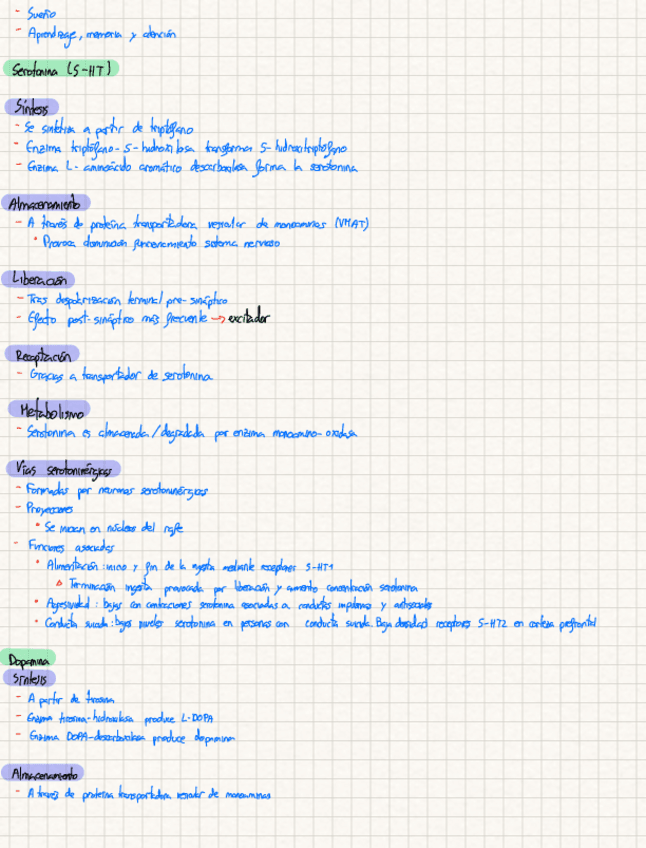 - Sueño
- Aprendizaje, memoria y atención
Serotonina (5-HT)
Síntesis
- Se sintetiza a partir de triptófano
- Enzima triptófano-5-hidroxilasa transforma 5-hidroxitriptófano
- Enzima L-aminoácido aromático descarboxilasa forma la serotonina
Almacenamiento
- A través de proteína transportadora vesicular de monoaminas (VMAT)
• Provoca disminución funcionamiento sistema nervioso
Liberación
- Tras despolarización terminal pre-sináptico
- Efecto post-sináptico más frecuente → excitador
Recaptación
- Gracias a transportador de serotonina
Metabolismo
- Serotonina es almacenada/degradada por enzima monoamino-oxidasa
Vías serotoninérgicas
- Formadas por neuronas serotoninérgicas
- Proyecciones
• Se inician en núcleos del rafe
- Funciones asociadas
• Alimentación: inicio y fin de la ingesta mediante receptores 5-HT1
Terminación ingesta provocada por liberación y aumento concentración serotonina
• Agresividad: bajas concentraciones serotonina asociadas a conductas impulsivas y antisociales
• Conducta suicida: bajos niveles serotonina en personas con conducta suicida. Baja densidad receptores 5-HT2 en corteza prefrontal
Dopamina
Síntesis
- A partir de tirosina
- Enzima tirosina-hidroxilasa produce L-DOPA
- Enzima DOPA-descarboxilasa produce dopamina
Almacenamiento
- A través de proteína transportadora vesicular de monoaminas